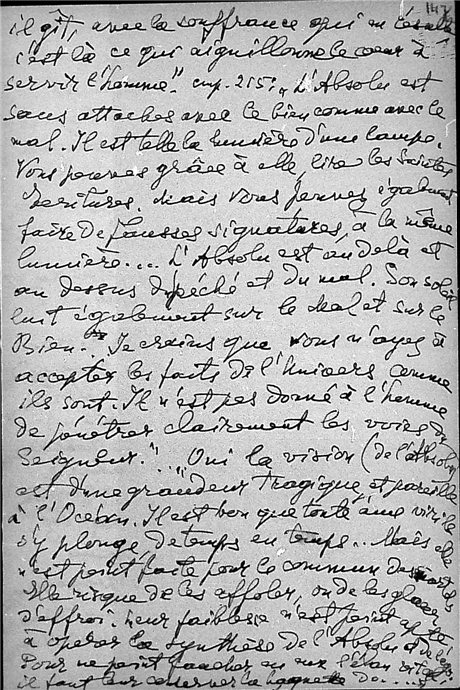 il gît, avec la souffrance qui en découle
c'est là ce qui aiguillonne le cœur à
servir l'homme". cmp. 215: „L'Absolu est
sans attaches avec le bien comme avec le
mal. Il est telle la lumière d'une lampe.
Vous pouvez grâce à elle, lire les Saintes
Écritures. Mais vous pouvez également
faire de fausses signatures, à la même
lumière.... L'Absolu est au delà et
au dessus du péché et du mal. Son soleil
luit également sur le Mal et sur le
Bien." „Je crains que vous n'ayez à
accepter les faits de l'Univers comme
ils sont. Il n'est pas donné à l'homme
de pénétrer clairement les voies du
Seigneur." „Oui la vision (de l'Absolu)
est d'une grandeur tragique, et pareille
à l'Océan. Il est bon que toute âme virile
s'y plonge de temps en temps... Mais elle
n'est point faite pour le commun des mortels
Elle risque de les affoler, ou de les glacer
d'effroi. Leur faiblesse n'est point apte
à opérer la synthèse de l'Absolu et de
Pour ne point faucher en eux l'élan vital
il faut leur conserver la baguette